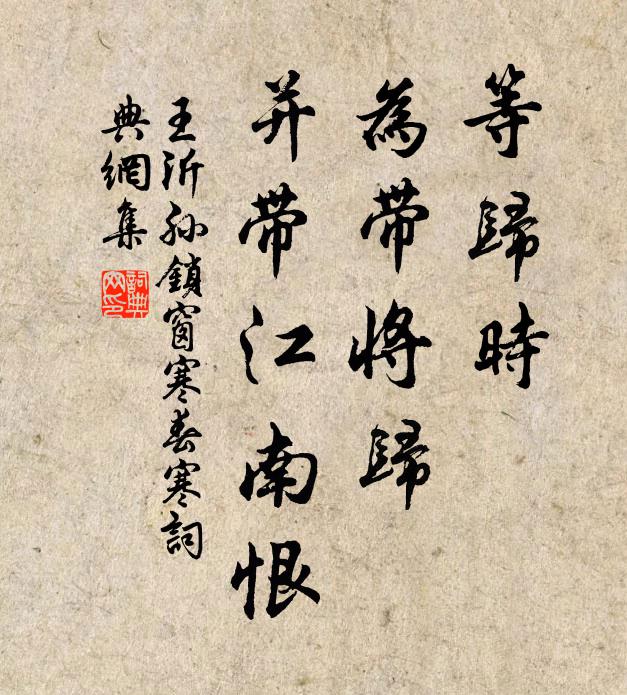 等歸時
為帶將歸
并帶江南恨
王沂孙鎖窗寒春寒詞
典網集
詞典网印